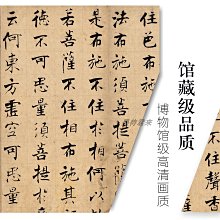 住色布施
法布施須菩
是布施不住於相
若菩薩不住相布施其
德不可思量須菩
云何東方虛空可思
馆藏级品质
博物馆级高清画质
不住聲香